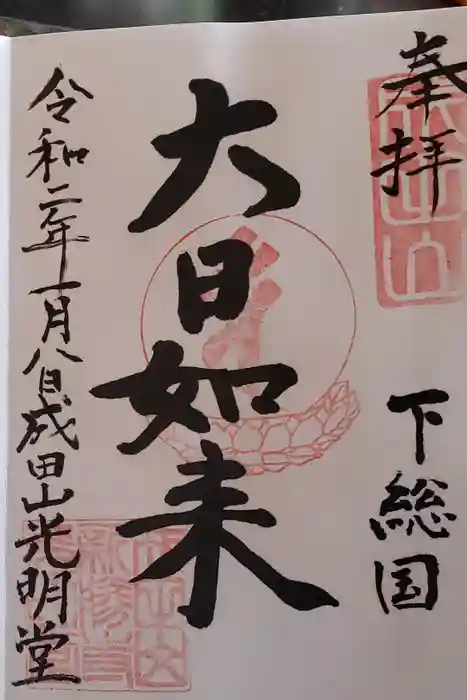 奉拝
下総国
大日如来
令和二年一月八日成田山光明堂